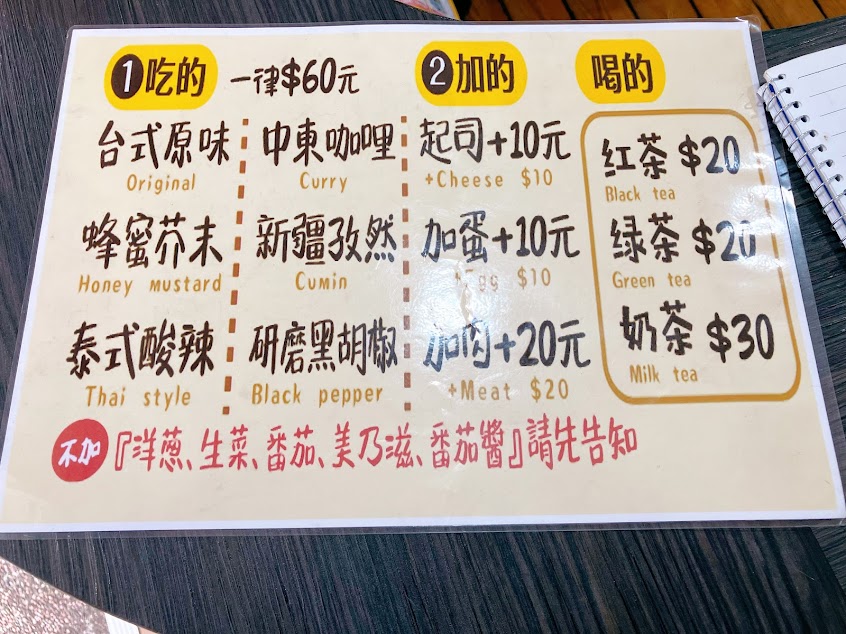 1 吃的 一律$60元
台式原味
Original
蜂蜜芥末
Honey mustard
泰式酸辣
Thai style
中東咖哩
Curry
新疆孜然
Cumin
研磨黑胡椒
Black pepper
2 加的
起司+10元
+Cheese $10
加蛋+10元
+Egg $10
加肉+20元
+Meat $20
喝的
红茶 $20
Black tea
绿茶 $20
Green tea
奶茶 $30
Milk tea
不加『洋蔥、生菜、番茄、美乃滋、番茄醬』請先告知